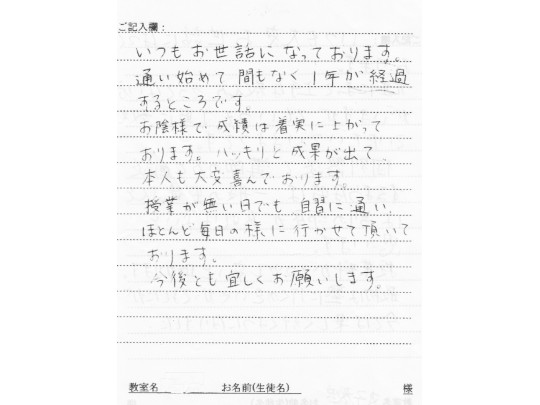 ご記入欄:
いつもお世話になっております。
通い始めて間もなく1年が経過
するところです。
お陰様で成績は着実に上がって
おります。ハッキリと成果が出て、
本人も大変喜んでおります。
授業が無い日でも自習に通い、
ほとんど毎日の様に行かせて頂いて
おります。
今後とも宜しくお願いします。
教室名 お名前(生徒名) 様